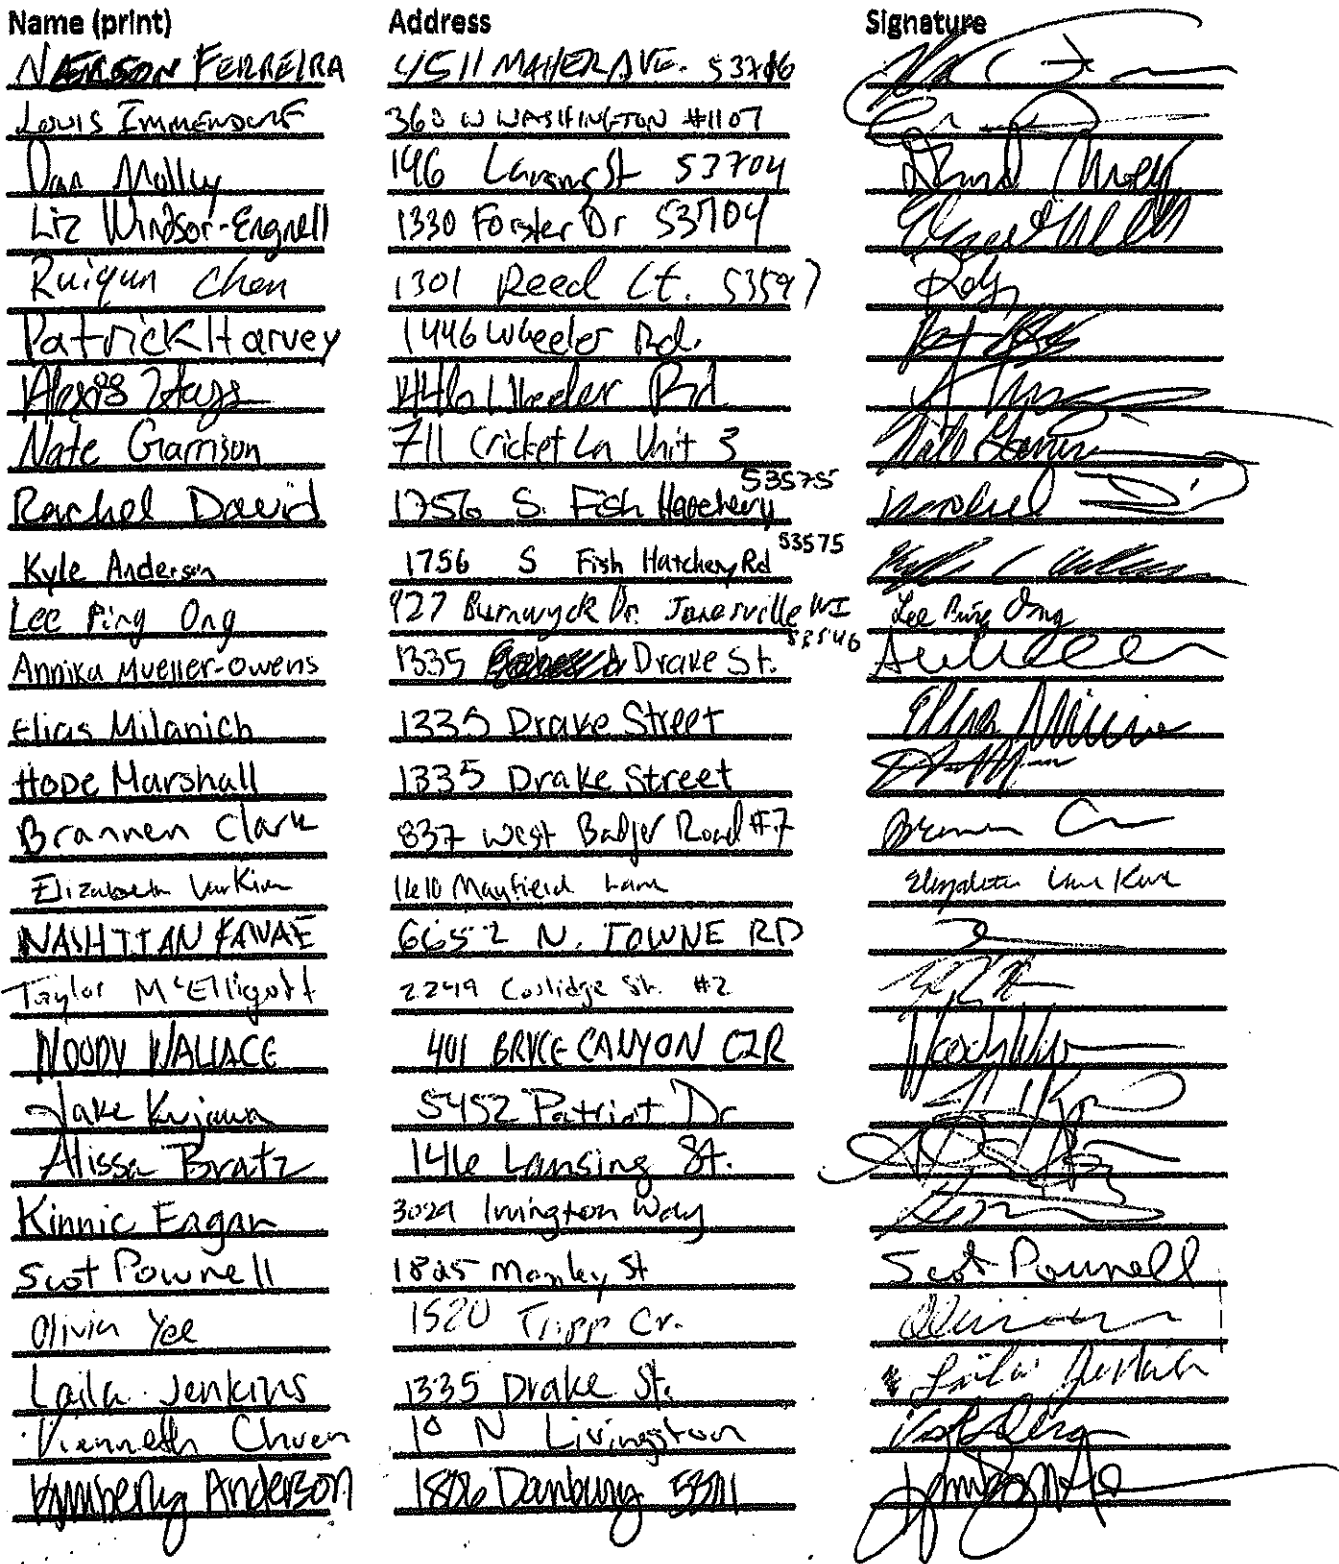 Name (print) Address Signature
FERREIRA 4511 MAHER AVE.
LOUIS IMMENDORF 360 W WASHINGTON #1107
Dan Molly Lansing St 53704
Liz Windsor-Engnell 1330 Forster Dr 53704
Ruiqun Chen 1301 Reed Ct. 53597
Patrick Harvey 1446 Wheeler Rd.
Wheeler Rd
Nate Garrison 711 Cricket Ln Unit 3
Rachel David 1756 S. Fish Hatchery 53575
Kyle Anderson 1756 S Fish Hatchery Rd 53575
Lee Ping Ong 927 Burnwyck Dr. Janesville WI 53546 Lee Ping Ong
Annika Mueller-Owens 1335 Drake St.
Elias Milanich 1335 Drake Street
Hope Marshall 1335 Drake Street
Brannen Clark 837 West Badger Road #7
Elizabeth 1610 Mayfield Lane Elizabeth
6652 N. TOWNE RD
Taylor McElligott 2249 Coolidge St. #2
WOODY WALLACE 401 BRYCE CANYON CIR
Jake Kujawa 5452 Patriot Dr
Alissa Bratz 146 Lansing St.
Kinnic Eagan 3029 Irvington Way
Scot Pownell 1825 Manley St Scot Pownell
Olivia Yee 1520 Tripp Cr.
Laila Jenkins 1335 Drake St. Laila Jenkins
Vienneth Chuen 10 N Livingston
Kymberly Anderson Danbury